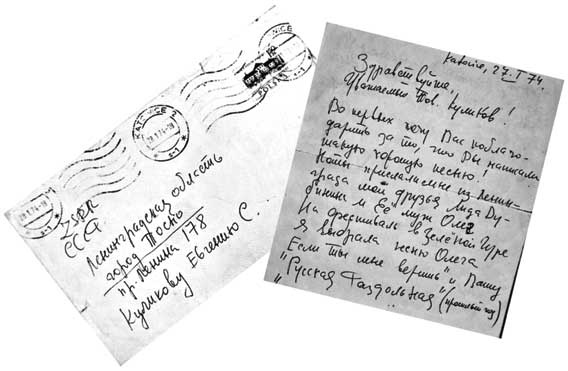 KATOWICE 2
28.1.74-21
ZSRR
СССР
Ленинградская область
город Тосно
пр. Ленина 178
Куликову Евгению С.
Katowice, 27.I 74.
Здравствуйте,
Уважаемый Тов. Куликов!
Во первых хочу Вас поблаго-
дарить за то, что Вы написали
такую хорошую песню!
Ноты прислали мне из Ленин-
града мои друзья Лида Ду-
бинины и Её муж Олег
На фестиваль в Зелёной Гуре
Я выбрала песню Олега
Если ты мне веришь" и Вашу
"Русская Раздольная" (прошлый год)